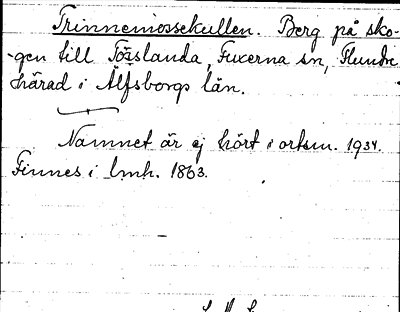 Trinnemossekullen. Berg på sko-
-gen till Tösslanda, Fuxerna sn, Flundre
härad i Älfsborgs län.
Namnet är ej hört i ortsn. 1934.
Finnes i lmh. 1863.